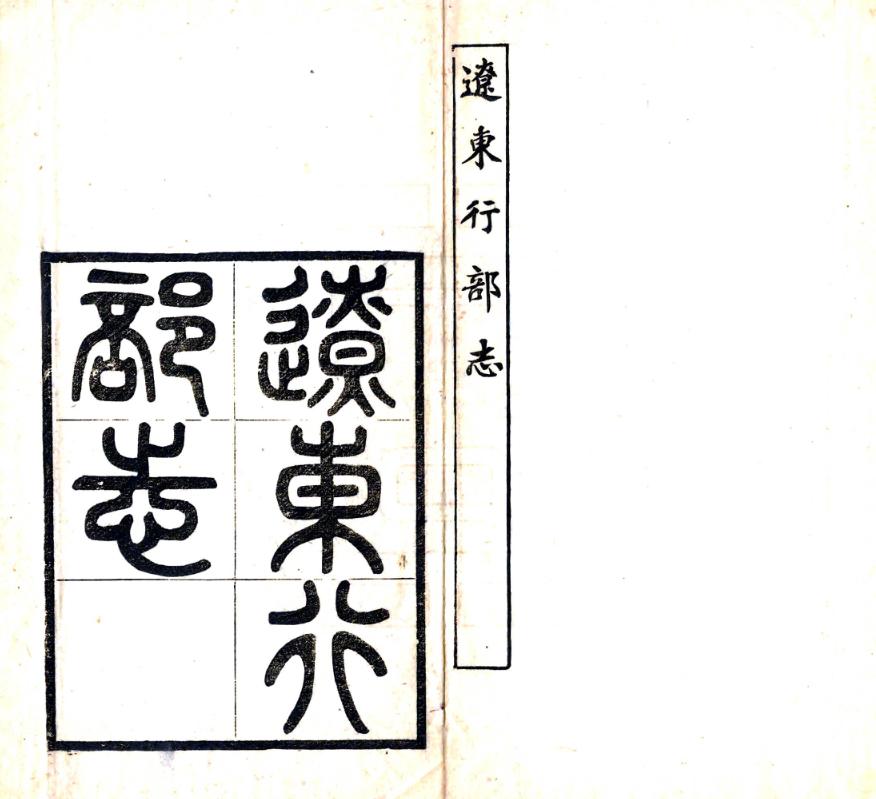 遼東行部志
遼東行
部志